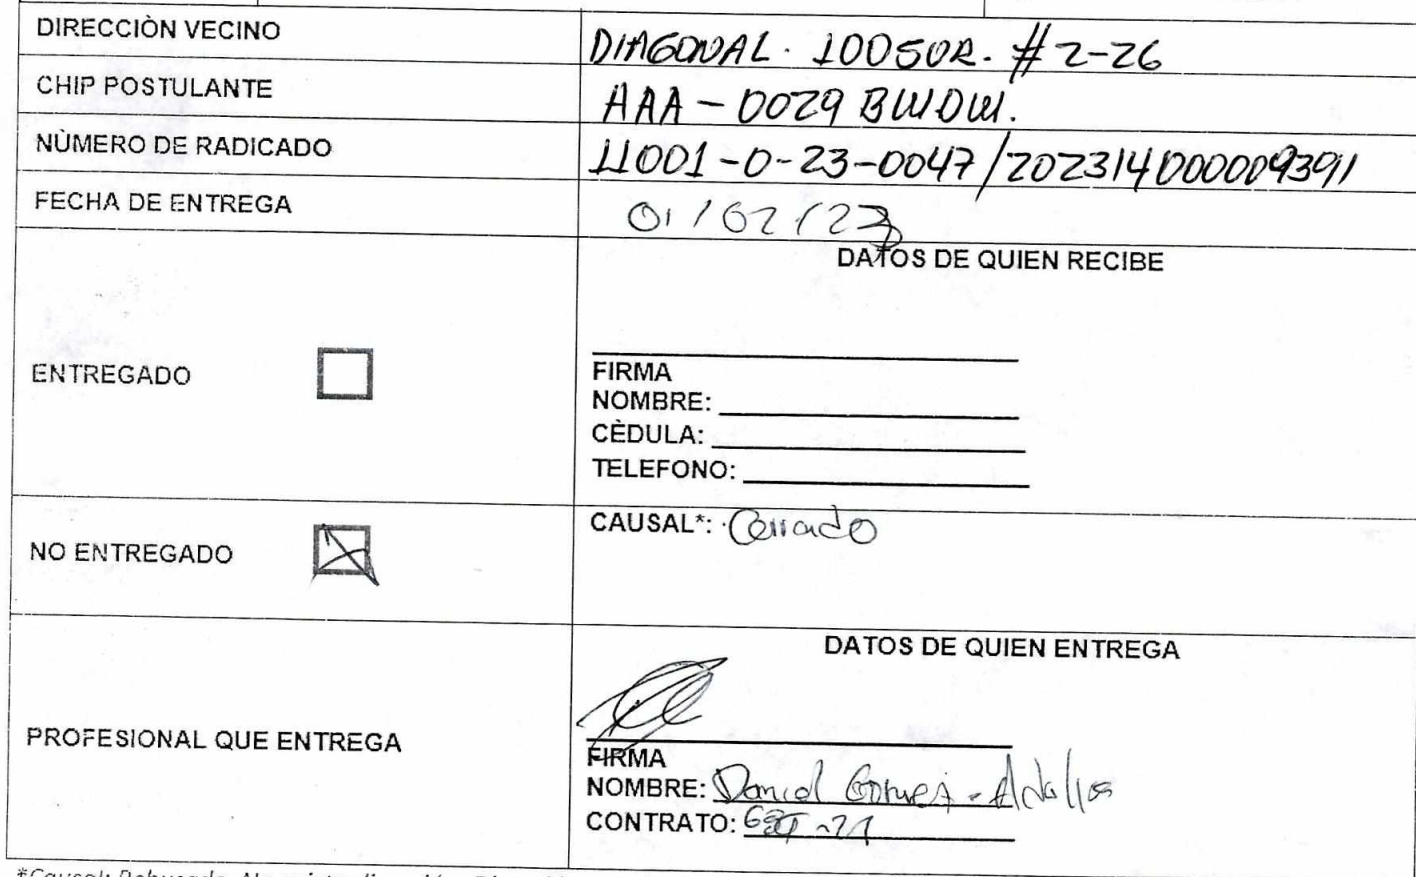 DIRECCIÒN VECINO DIAGONAL. 100SUR. # 2-26
CHIP POSTULANTE AAA-0029 BWDW.
NÙMERO DE RADICADO 11001-0-23-0047/202314000009391
FECHA DE ENTREGA 01/02/23
DATOS DE QUIEN RECIBE
ENTREGADO
FIRMA
NOMBRE:
CÈDULA:
TELEFONO:
NO ENTREGADO
CAUSAL*: Cerrado
DATOS DE QUIEN ENTREGA
PROFESIONAL QUE ENTREGA
FIRMA
NOMBRE: Daniel Gomez -
CONTRATO: